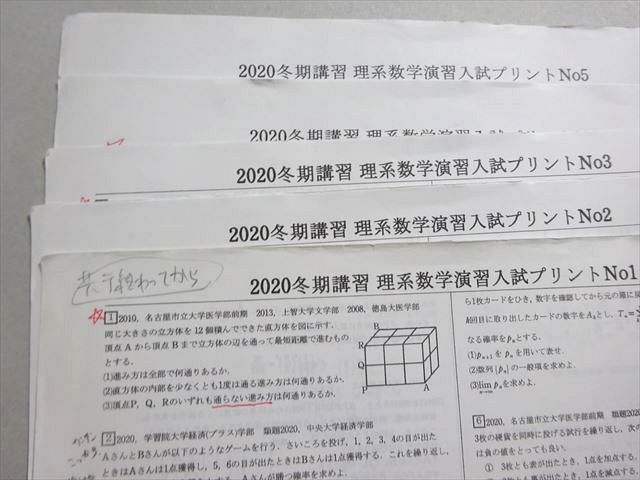 2020冬期講習 理系数学演習入試プリントNo5
2020冬期講習 理系数学演習入試
2020冬期講習 理系数学演習入試プリントNo3
2020冬期講習 理系数学演習入試プリントNo2
共テ終わってから
2020冬期講習 理系数学演習入試プリントNo1
1 2010, 名古屋市立大学医学部前期 2013, 上智大学文学部 2008, 徳島大医学部
同じ大きさの立方体を 12 個積んでできた直方体を図に示す.
頂点 A から頂点 B まで立方体の辺を通って最短距離で進むもの
とする.
(1)進み方は全部で何通りあるか.
(2)直方体の内部を少なくとも1度は通る進み方は何通りあるか.
(3)頂点P, Q, Rのいずれも通らない進み方は何通りあるか.
B
R
Q
P
A
2 2020, 学習院大学経済(プラス)学部 類題2020, 中央大学経済学部
AさんとBさんが以下のようなゲームを行う. さいころを投げ, 1, 2, 3, 4の目が出た
ときはAさんは1点獲得し, 5, 6の目が出たときはBさんは1点獲得する. これを繰り返し,
Aさんが勝つ確率を求めよ.
ら1枚カードをひき, 数字を確認してから元の箱に戻
k回目に取り出したカードの数字をAₖとし, Tₙ=
なる確率をpₙとする.
(1)pₙ₊₁ を pₙ を用いて表せ.
(2)数列{pₙ}の一般項を求めよ.
(3)lim pₙを求めよ.
6 2020, 名古屋市立大学医学部前期 類題2020,
3枚の硬貨を同時に投げる試行を繰り返し, 次の
は負の値をとっても良い.
① 3枚とも表が出たとき, 1点を加点する.
1点を減点する.